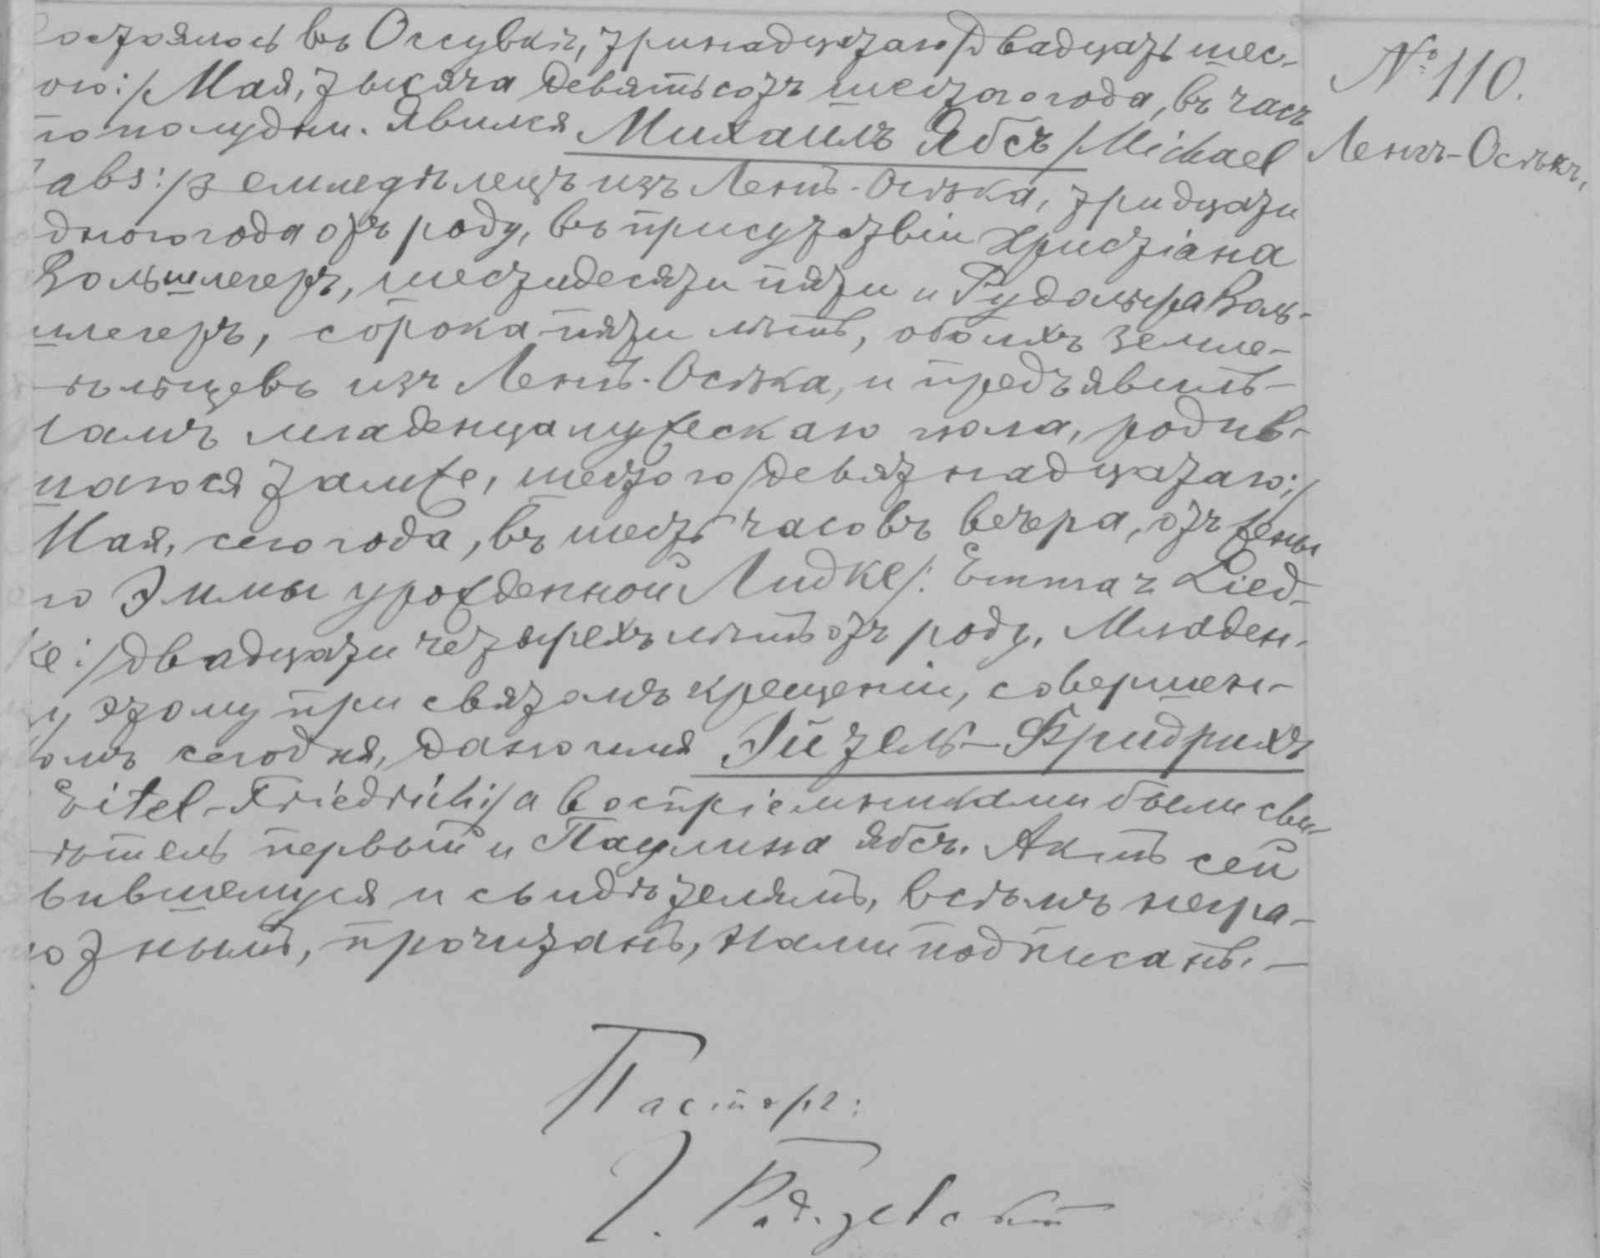 остоялось въ Оссувкѣ, тринадцатаго /двадцать шес-
ого:/ Мая, тысяча девятьсотъ шестого года, въ часъ
по полудни. Явился Михаилъ Ябсъ /Michael
Jabs:/ земледѣлецъ изъ Ленгъ-Осѣка, тридцати
дного года отъ роду, въ присутствіи Христіана
Вольшлегеръ, шестидесяти пяти и Рудольфа Воль-
шлегеръ, сорока пяти лѣтъ, обоихъ земле-
дѣльцевъ изъ Ленгъ-Осѣка, и предъявилъ
намъ младенца мужескаго пола, родив-
шагося тамже, шестого /девятнадцатаго:/
Мая, сего года, въ шесть часовъ вечера, отъ жены
го Эммы урожденной Лидке /: Emma z Lied-
ke:/ двадцати четырехъ лѣтъ отъ роду. Младен-
у этому при святомъ крещеніи, совершен-
омъ сегодня, дано имя Эйтель-Фридрихъ
Eitel-Friedrich:/ а воспріемниками были сви-
дѣтель первый и Паулина Ябсъ. Актъ сей
вившемуся и свидѣтелямъ, всѣмъ негра-
отнымъ, прочитанъ, Нами подписанъ. —
Пасторъ:
№ 110.
Ленгъ-Осѣкъ,